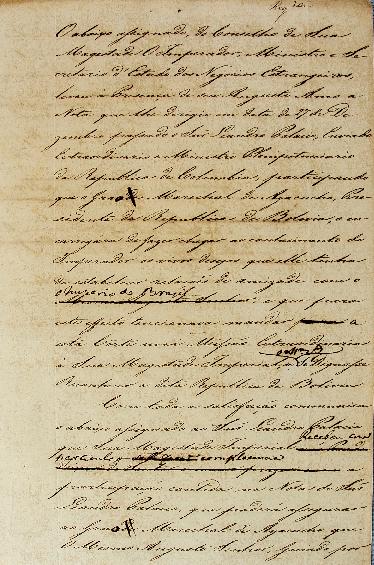 O abaixo assignado, do Conselho de Sua
Magestade O Imperador, Ministro e Se-
cretario d'Estado dos Negocios Estrangeiros,
levou á Presença de seu Augusto Amo a
Nota que lhe dirigio em data de 27 de De-
zembro passado o Snr Leandro Palacio, Enviado
Extraordinario e Ministro Plenipotenciario
da Republica de Colombia, participando
que o Gram Marechal de Ayacucho, Pre-
sidente da Republica de Bolivia, o en-
carregára de fazer chegar ao conhecimento do
Imperador os vivos desejos que elle tinha
de estabelecer relações de amizade com o
Imperio do Brasil
e que para
este effeito tencionava mandar a
esta Corte uma Missão Extraordinaria
á Sua Magestade Imperial,
Reconhecer a dita Republica de Bolivia
Com toda a satisfação communica
o abaixo assignado ao Snr Leandro Palacio
que Sua Magestade Imperial
receber com
complacencia
a
participação contida na Nota do Snr
Leandro Palacio, que poderá assegurar
ao Gram Marechal de Ayacucho que
O Mesmo Augusto Senhor, guiado por